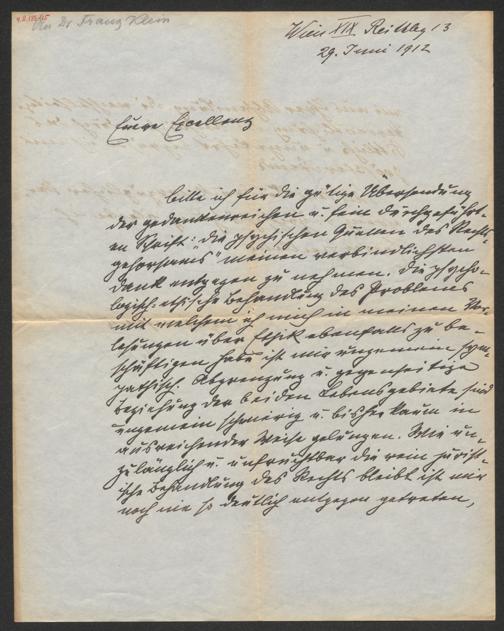 An Dr Franz Klein
Wien XIX Reithleg 13
29. Juni 1912
Euere Excellenz
bitte ich für die gütige Übersendung
der gedankenreichen u. fein durchgeführt-
en Schrift: "die psychischen Quellen des Rechts-
gehorsams" meinen verbindlichsten
Dank entgegen zu nehmen. Die psycho-
logisch-ethische Behandlung des Problems
mit welchem ich mich in meinen Vor-
lesungen über Ethik ebenfalls zu be-
schäftigen habe ist mir ungemein sym-
pathisch. Abgrenzung u. gegenseitige
Beziehung der beiden Lebensgebiete sind
ungemein schwierig u. bisher kaum in
ausreichender Weise gelungen. Wie un-
zulänglich u. unfruchtbar die rein jurist-
ische Behandlung des Rechts bleibt ist mir
noch nie so deutlich entgegen getreten,